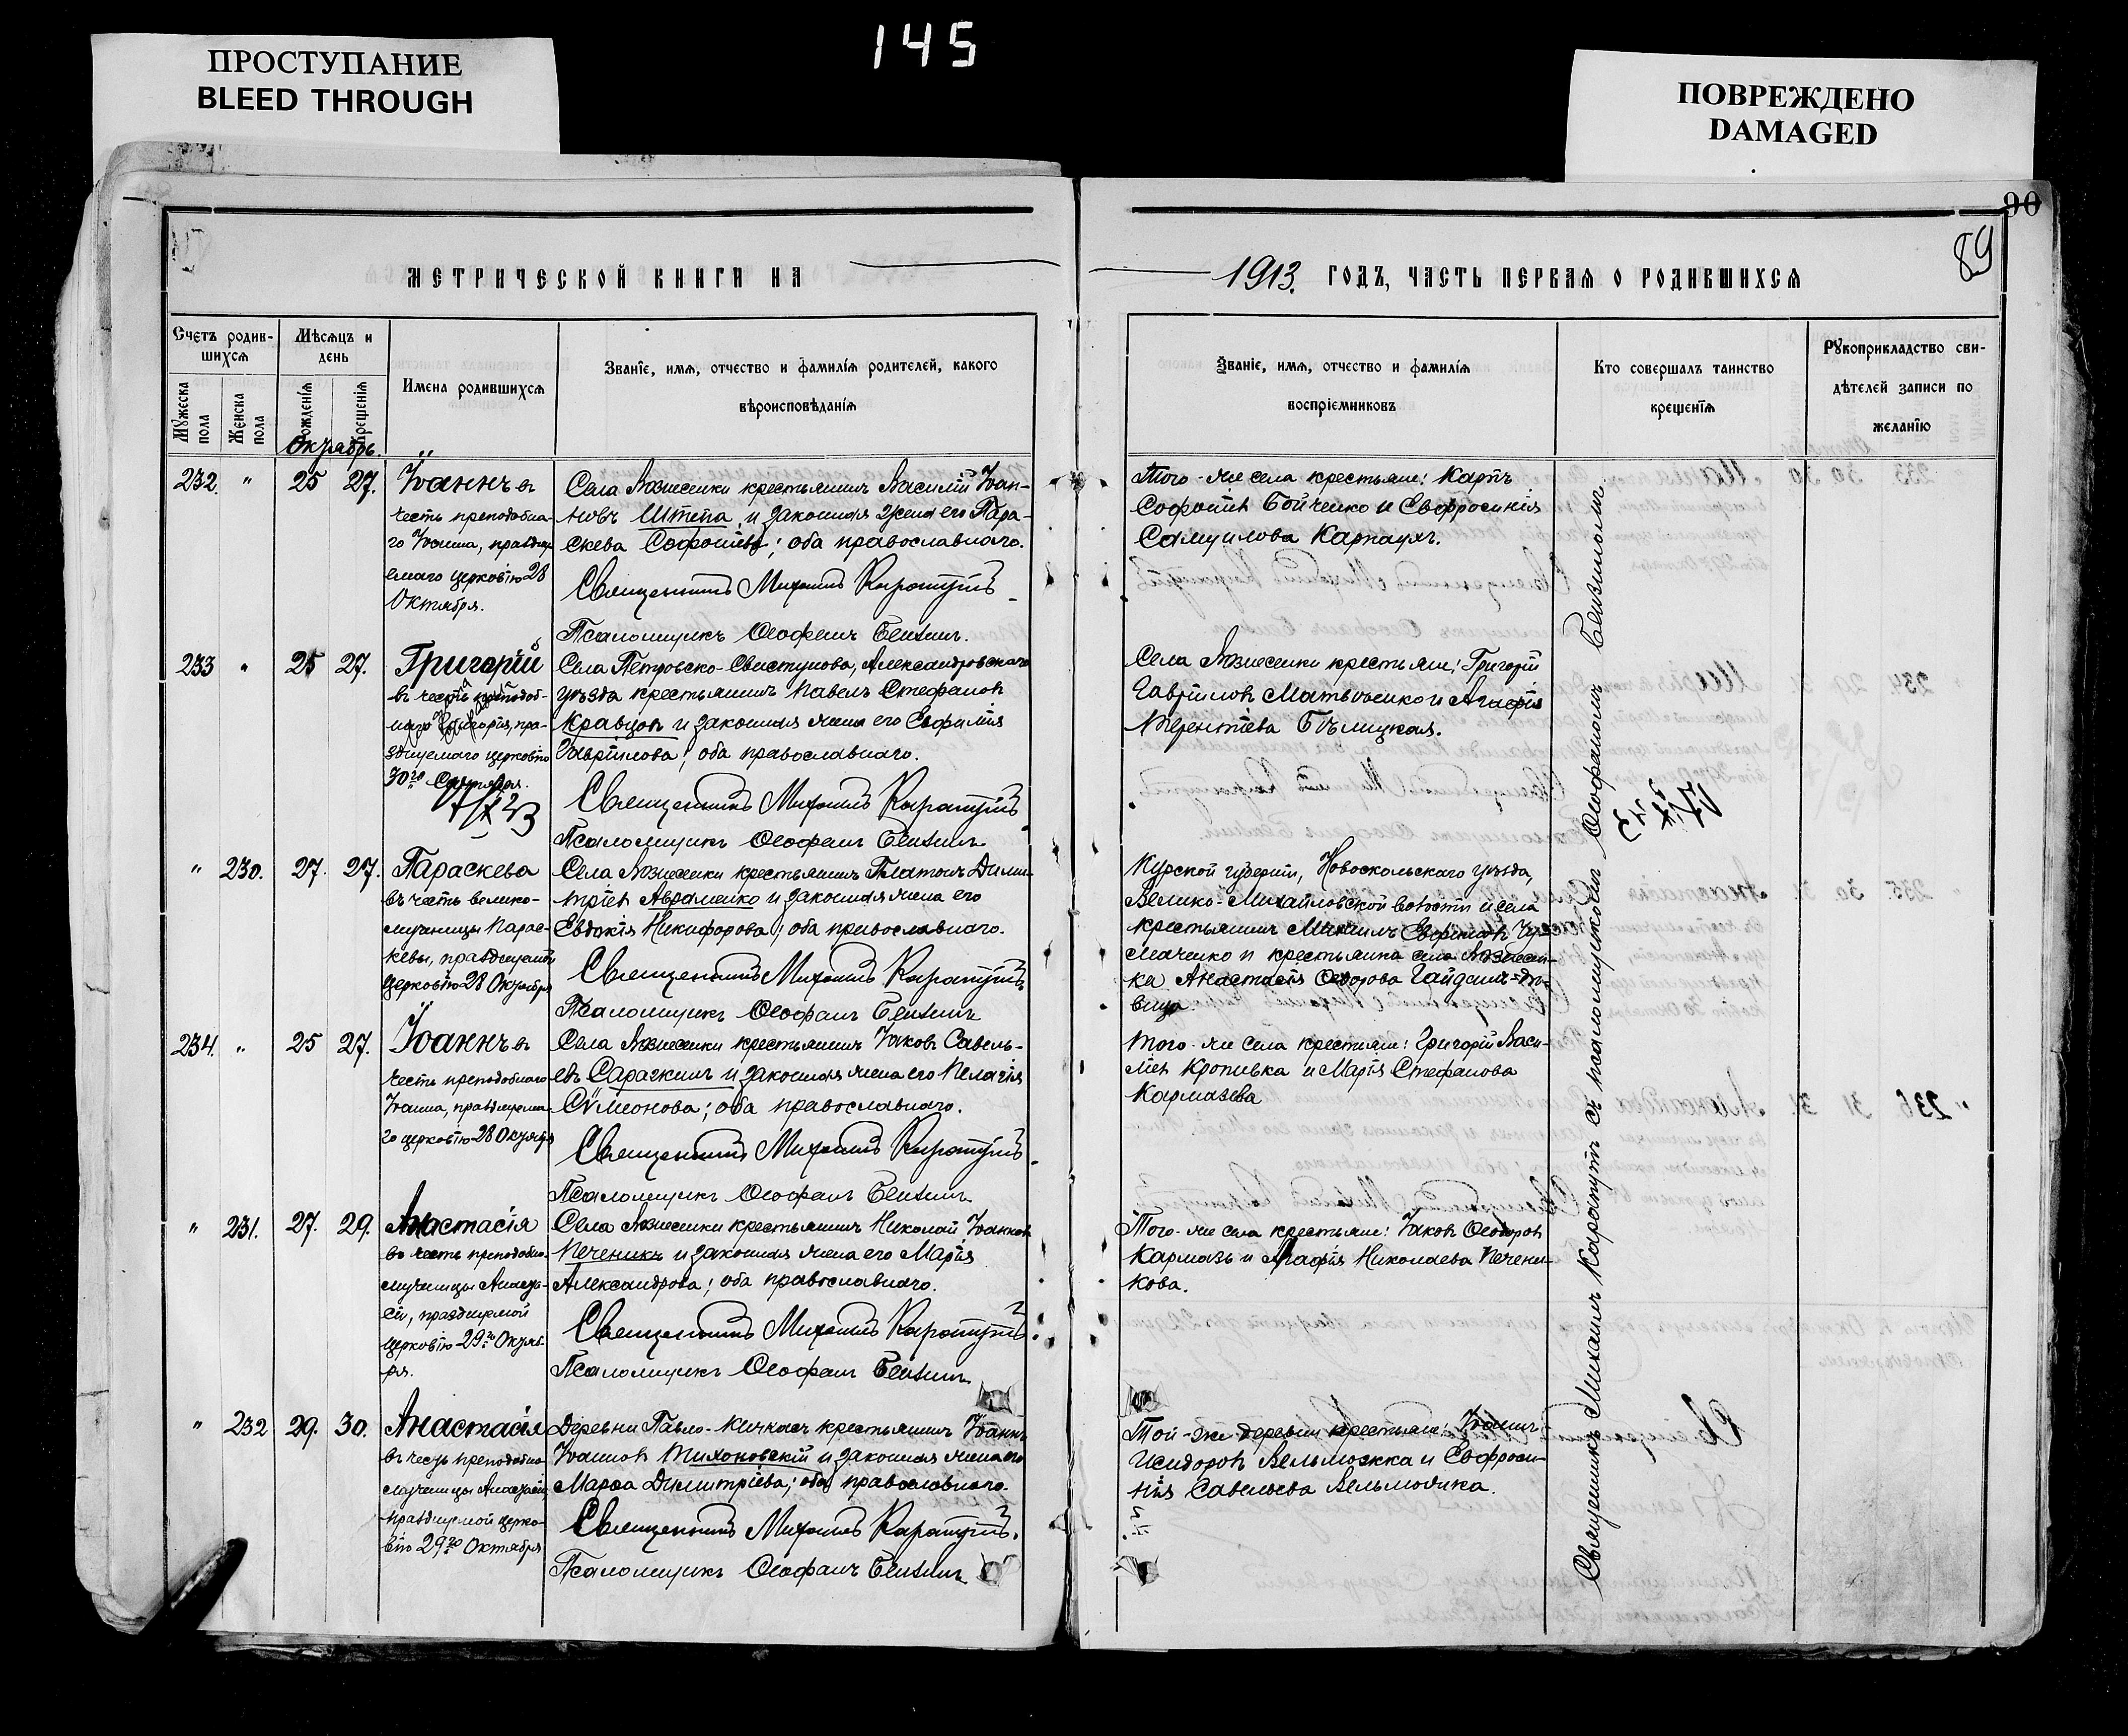 145
ПРОСТУПАНИЕ
BLEED THROUGH
ПОВРЕЖДЕНО
DAMAGED
90
89
МЕТРИЧЕСКОЙ КНИГИ НА
1913. ГОДЪ, ЧАСТЬ ПЕРВАЯ О РОДИВШИХСЯ
Счетъ родив-
шихся
Мужеска пола
Женска пола
Мѣсяцъ и
день
Рожденія
Крещенія
Имена родившихся
Званіе, имя, отчество и фамилія родителей, какого
вѣроисповѣданія
Званіе, имя, отчество и фамилія
воспріемниковъ
Кто совершалъ таинство
крещенія
Рукоприкладство сви-
дѣтелей записи по
желанію
Октябрь.
232. " 25 27.
Іоаннъ въ
честь преподобна-
го Іоанна, празднуе
емаго церковію 28
Октября.
Села Вознесенки крестьянинъ Василій Іоан-
новъ Штепа и законная жена его Пара-
скева Софоніева; оба православнаго.
Священникъ Михаилъ Карапутъ
Псаломщикъ Ѳеофанъ
Того-же села крестьяне: Карпъ
Софоніевъ Бойченко и Евфросинія
Самуилова Карпаухъ.
233 " 25 27.
Григорій
въ честь преподоб-
наго Григорія, пра-
зднуемаго церковію
30го Сентября.
Села Петровско-Свистунова, Александровскаго
уѣзда крестьянинъ Павелъ Стефановъ
Кравцовъ и законная жена его Евфимія
Гавріилова; оба православнаго.
Священникъ Михаилъ Карапутъ
Псаломщикъ Ѳеофанъ
Села Вознесенки крестьяне: Григорій
Гавріиловъ Матвѣенко и Агафія
Терентіева Бѣлицкая.
" 230. 27. 27.
Параскева
въ честь велико-
мученицы Парас-
кевы, празднуемой
церковію 28 Октября
Села Вознесенки крестьянинъ Платонъ Дими-
тріевъ Авраменко и законная жена его
Евдокія Никифорова; оба православнаго.
Священникъ Михаилъ Карапутъ
Псаломщикъ Ѳеофанъ
Курской губерніи, Новоскольскаго уѣзда,
Велико-Михайловской волости и села
крестьянинъ Михаилъ
и крестьянка села Вознесен-
ка Анастасія Ѳеодорова
вица.
234. " 25 27.
Іоаннъ въ
честь преподобнаго
Іоанна, празднуема-
го церковію 28 Октября
Села Вознесенки крестьянинъ Іаковъ Савель-
евъ Сарачкинъ и законная жена его Пелагія
Сѵмеонова; оба православнаго.
Священникъ Михаилъ Карапутъ
Псаломщикъ Ѳеофанъ
Того-же села крестьяне: Григорій Васи-
ліев Кропивка и Марія Стефанова
Кармазева
" 231. 27. 29.
Анастасія
въ честь преподобно-
мученицы Анаста-
сіи, празднуемой
церковію 29го Октяб-
ря.
Села Вознесенки крестьянинъ Николай Іоанновъ
Печеникъ и законная жена его Марія
Александрова; оба православнаго.
Священникъ Михаилъ Карапутъ
Псаломщикъ Ѳеофанъ
Того-же села крестьяне: Іаковъ Ѳеодоровъ
Кармазь и Агафія Николаева Печени-
кова.
" 232 29. 30.
Анастасія
въ честь преподобно
мученицы Анастасіи,
празднуемой церко-
вію 29го Октября
Деревни Павло-Кичкасъ крестьянинъ Іоаннъ
Іоанновъ Тихоновскій и законная жена его
Марѳа Димитріева; оба православнаго.
Священникъ Михаилъ Карапутъ.
Псаломщикъ Ѳеофанъ
Той-же деревни крестьяне: Іоаннъ
Исидоровъ Вельможка и Евфроси-
нія Савельева Вельможка.
Священникъ Михаилъ Карапутъ съ псаломщикомъ Ѳеофаномъ